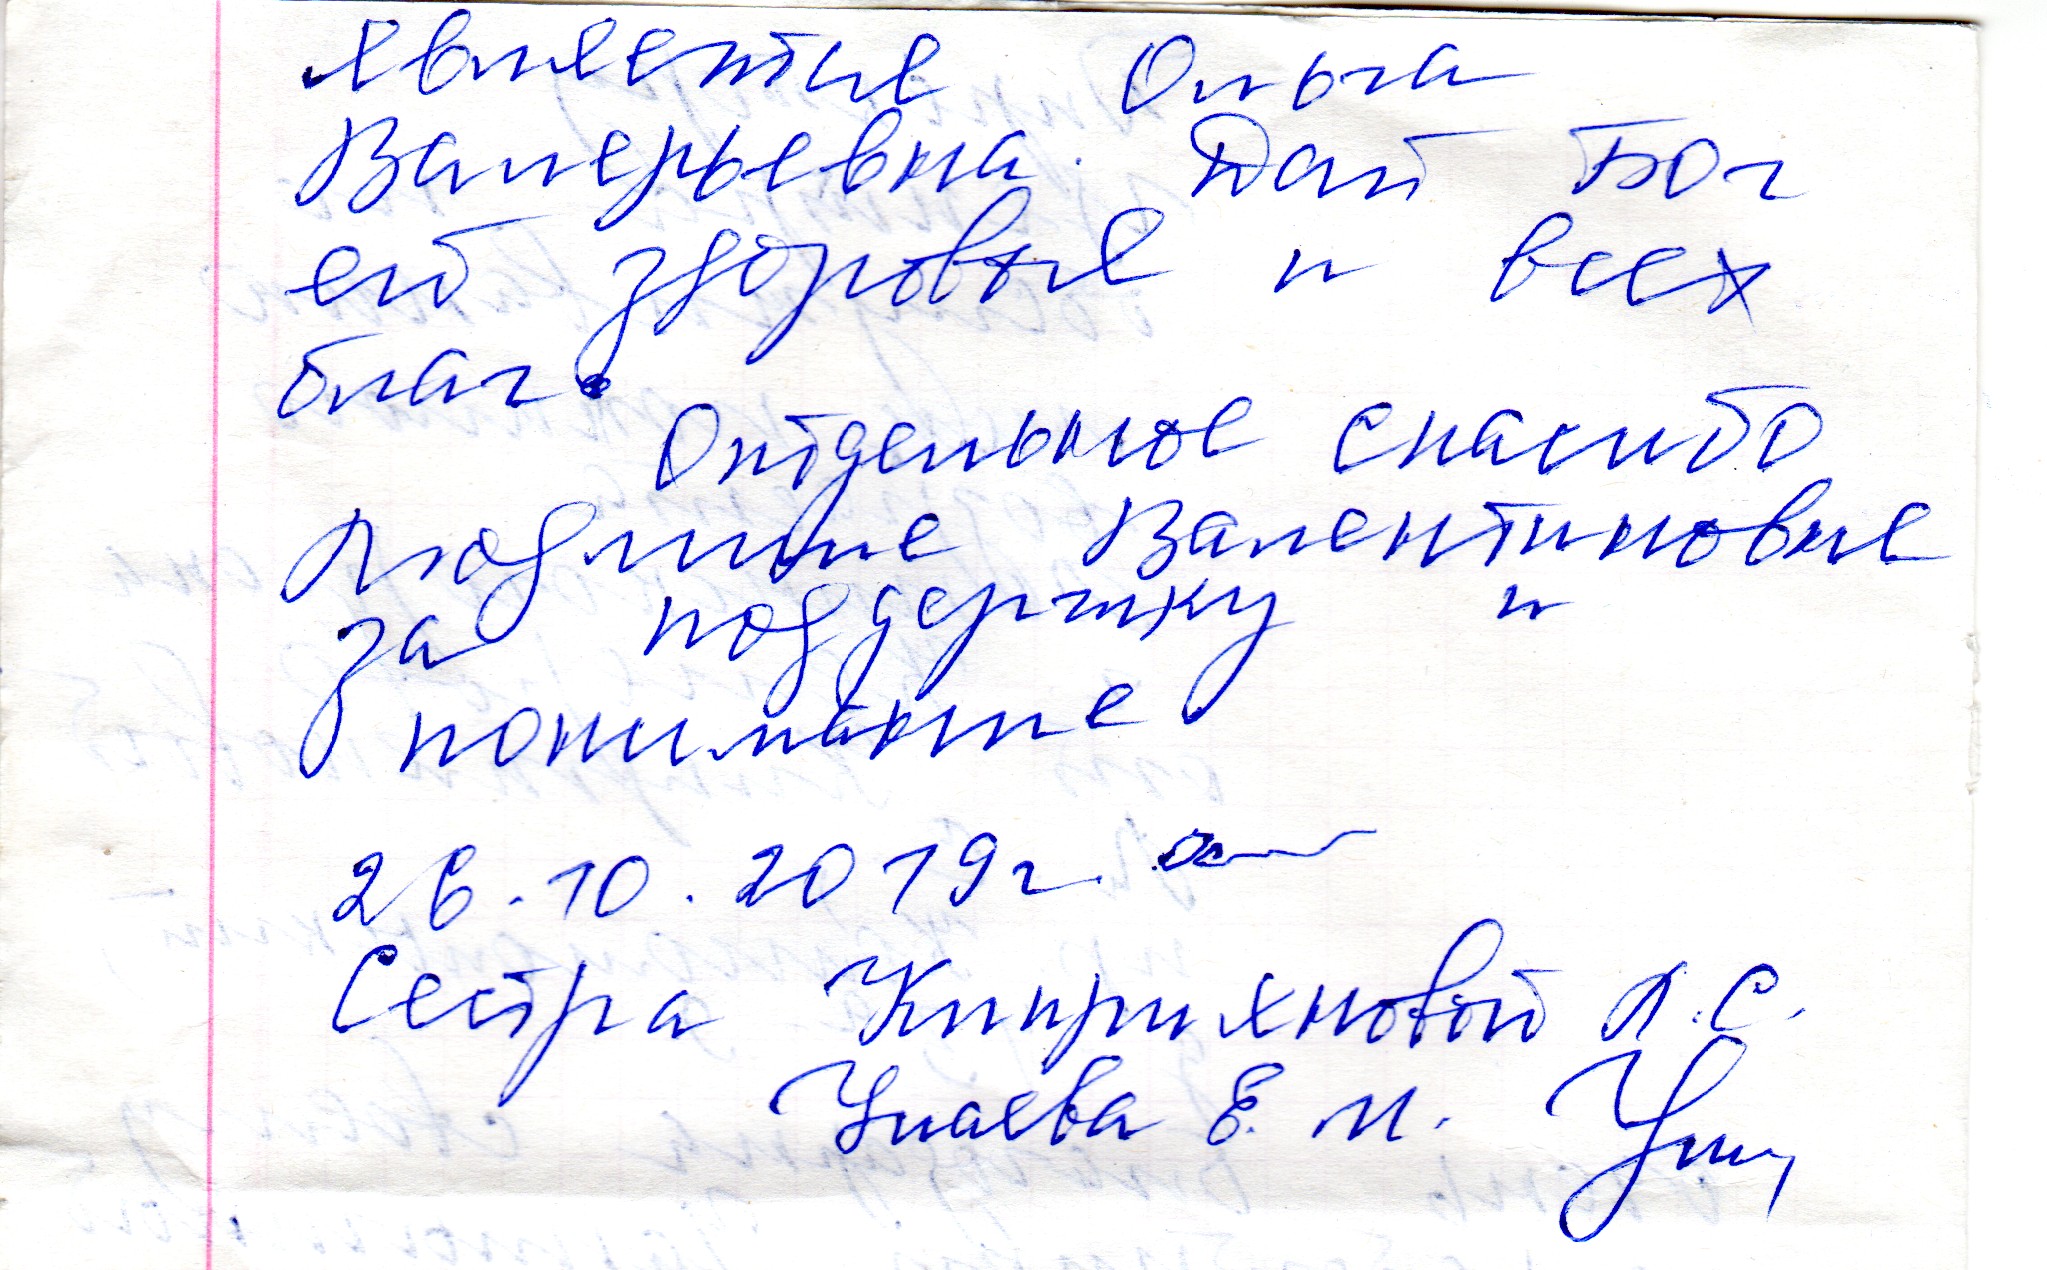 является Ольга
Валерьевна. Дай Бог
ей здоровье и всех
благ.
Отдельное спасибо
Людмиле Валентиновне
за поддержку и
понимание.
26.10.2019г.
Сестра Киприяновой Л.С.
Унаева Е. М.